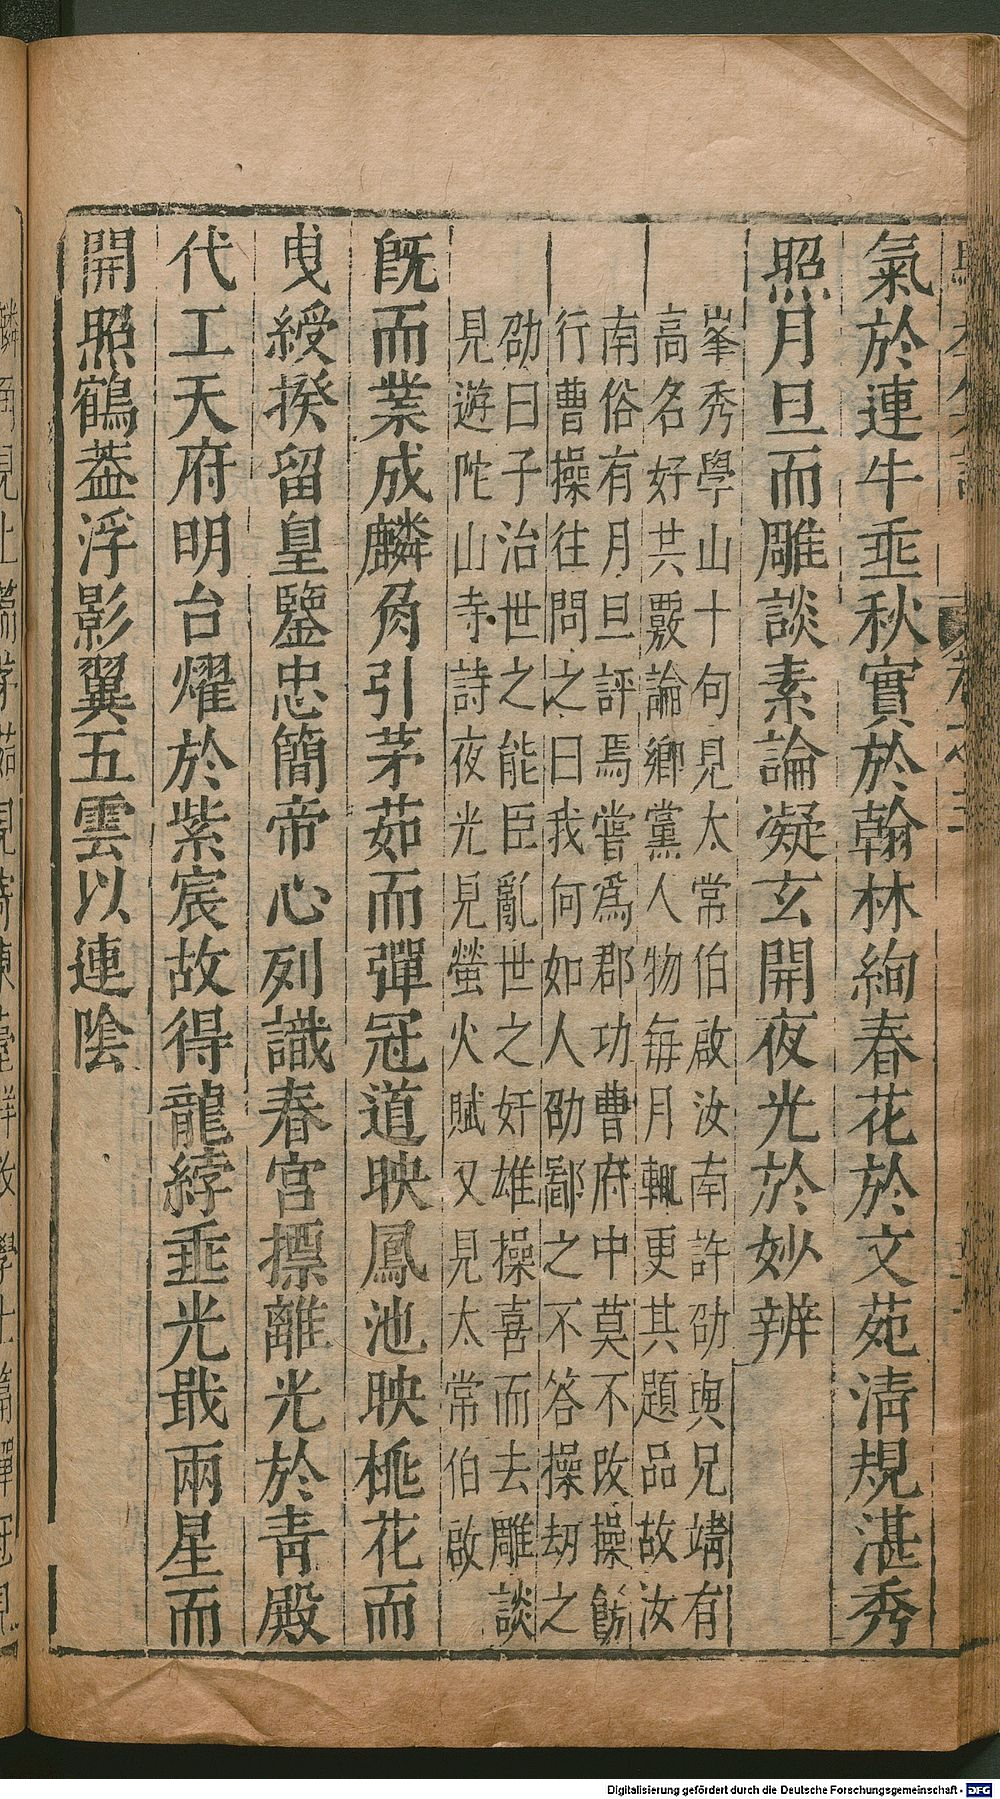 氣於連牛垂秋實於翰林絢春花於文苑清規湛秀
照月旦而雕談素論凝玄開夜光於妙辨
峯秀學山十句見太常伯啟汝南許劭與兄靖有
高名好共覈論鄉黨人物每月輒更其題品故汝
南俗有月旦評焉嘗為郡功曹府中莫不改操飭
行曹操往問之曰我何如人劭鄙之不答操劫之
劭曰子治世之能臣亂世之奸雄操喜而去雕談
見遊陀山寺詩夜光見螢火賦又見太常伯啟
既而業成麟角引茅茹而彈冠道映鳳池映桃花而
曳綬揆留皇鑒忠簡帝心列識春宮摽離光於青殿
代工天府明台耀於紫宸故得龍綍垂光戢兩星而
開照鶴蓋浮影翼五雲以連陰
Digitalisierung gefördert durch die Deutsche Forschungsgemeinschaft - DFG